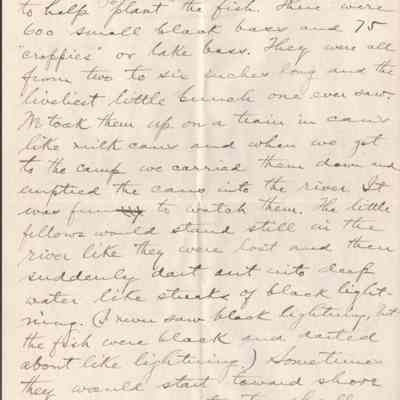 to help "plant" the fish. There were
600 small black bass and 75
"crappies" or lake bass. They were all
from two to six inches long and the
liveliest little bunch one ever saw.
We took them up on a train in cans
like milk cans and when we got
to the camp we carried them down and
emptied the cans into the river. It
was funny to watch them. The little
fellows would stand still in the
river like they were lost and then
suddenly dart out into deep
water like streaks of black light-
ning. (I never saw black lightning, but
the fish were black and darted
about like lightning.) Sometimes
they would start toward shore